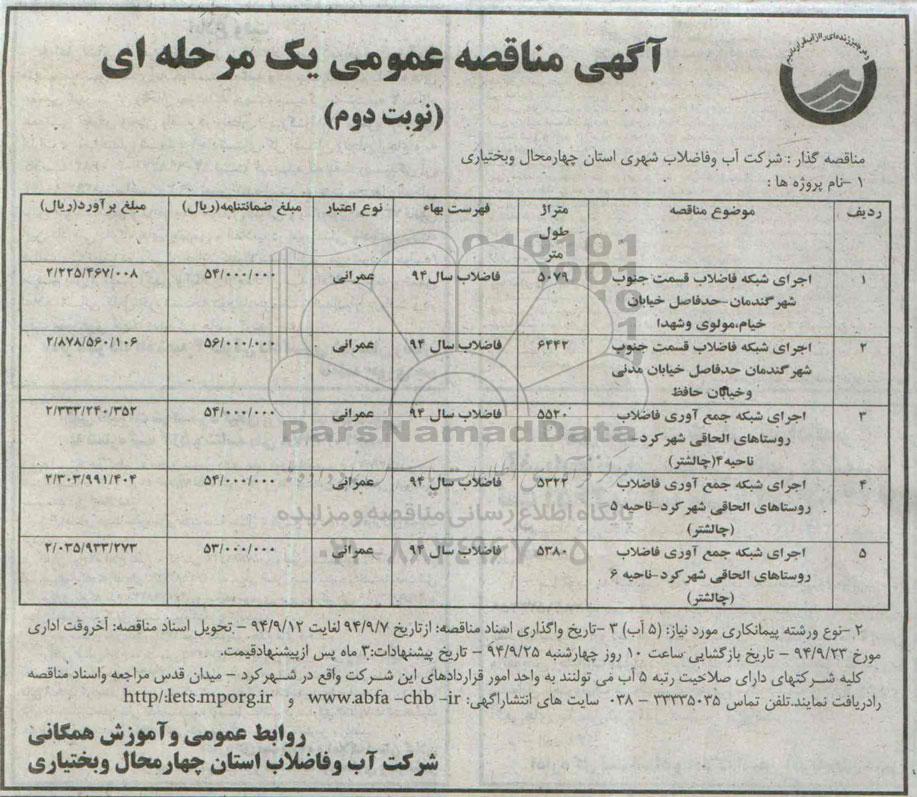 آگهی مناقصه عمومی یک مرحله ای
(نوبت دوم)
مناقصه گذار : شرکت آب وفاضلاب شهری استان چهارمحال وبختیاری
۱ –نام پروژه ها :
ردیف موضوع مناقصه متراژ طول متر فهرست بهاء نوع اعتبار مبلغ ضمانتنامه(ریال) مبلغ برآورد(ریال)
۱ اجرای شبکه فاضلاب قسمت جنوب ۵۰۷۹ فاضلاب سال ۹۴ عمرانی ۵۴/۰۰۰/۰۰۰ ۲/۲۲۵/۴۶۷/۰۰۸
شهرگندمان–حدفاصل خیابان
خیام،مولوی وشهدا
۲ اجرای شبکه فاضلاب قسمت جنوب ۶۴۴۲ فاضلاب سال ۹۴ عمرانی ۵۶/۰۰۰/۰۰۰ ۲/۸۷۸/۵۶۰/۱۰۶
شهرگندمان حدفاصل خیابان مدنی
وخیابان حافظ
۳ اجرای شبکه جمع آوری فاضلاب ۵۵۲۰ فاضلاب سال ۹۴ عمرانی ۵۴/۰۰۰/۰۰۰ ۲/۳۳۳/۲۴۰/۳۵۲
روستاهای الحاقی شهرکرد–
ناحیه۴(چالشتر)
۴ اجرای شبکه جمع آوری فاضلاب ۵۳۲۲ فاضلاب سال ۹۴ عمرانی ۵۴/۰۰۰/۰۰۰ ۲/۳۰۳/۹۹۱/۴۰۴
روستاهای الحاقی شهرکرد–ناحیه ۵
(چالشتر)
۵ اجرای شبکه جمع آوری فاضلاب ۵۳۸۰ فاضلاب سال ۹۴ عمرانی ۵۳/۰۰۰/۰۰۰ ۲/۰۳۵/۹۳۳/۲۷۳
روستاهای الحاقی شهرکرد–ناحیه ۶
(چالشتر)
ParsNamadData
پایگاه اطلاع رسانی مناقصه و مزایده
۲ –نوع ورشته پیمانکاری مورد نیاز: (۵ آب) ۳ –تاریخ واگذاری اسناد مناقصه: ازتاریخ ۹۴/۹/۷ لغایت ۹۴/۹/۱۲ – تحویل اسناد مناقصه: آخروقت اداری
مورخ ۹۴/۹/۲۳ – تاریخ بازگشایی ساعت ۱۰ روز چهارشنبه ۹۴/۹/۲۵ – تاریخ پیشنهادات:۳ ماه پس ازپیشنهادقیمت.
کلیه شرکتهای دارای صلاحیت رتبه ۵ آب می تولنند به واحد امور قراردادهای این شرکت واقع در شهرکرد – میدان قدس مراجعه واسناد مناقصه
رادریافت نمایند.تلفن تماس ۳۳۳۳۵۰۳۵ – ۰۳۸ سایت های انتشارآگهی: www.abfa –chb –ir و http/:iets.mporg.ir
روابط عمومی و آموزش همگانی
شرکت آب وفاضلاب استان چهارمحال وبختیاری